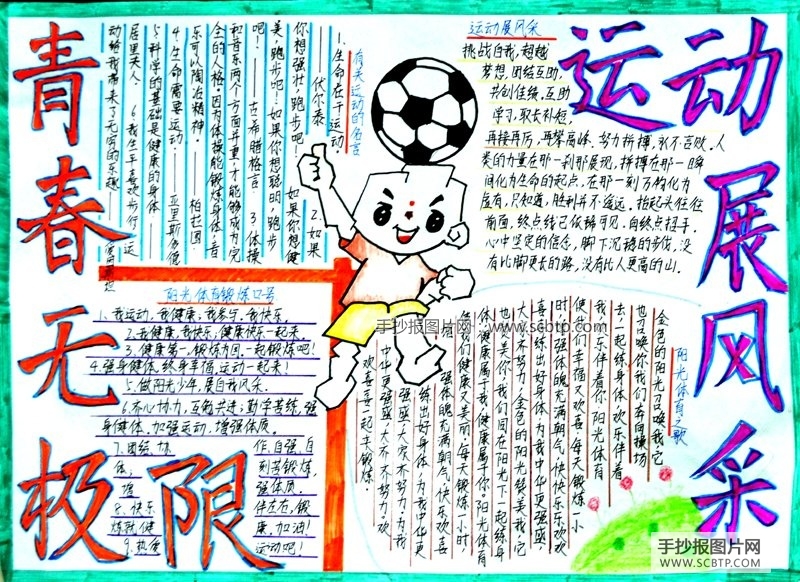 青春无极限
运动展风采
有关运动的名言
1.生命在于运动
——伏尔泰
2.如果
你想强壮,跑步吧!如果你想健
美,跑步吧!如果你想聪明,跑步
吧!——古希腊格言 3.体操
和音乐两个方面并重,才能够成为完
全的人格。因为体操能锻炼身体,音
乐可以陶冶精神。——柏拉图
4.生命需要运动——亚里斯多德
5.科学的基础是健康的身体——
居里夫人 6.我生平喜欢步行,运
动给我带来了无穷的乐趣——
运动展风采
挑战自我,超越
梦想,团结互助,
共创佳绩,互助
学习,取长补短,
再接再厉,再攀高峰,努力拼搏,永不言败。人
类的力量在那一刹那展现,拼搏在那一瞬
间化为生命的起点,在那一刻万物化为
虚有,只知道,胜利并不遥远,抬起头往往
前面,终点线已依稀可见,向终点招手,
心中坚定的信念,脚下沉稳的步伐,没
有比脚更长的路,没有比人更高的山。
阳光体育锻炼口号
1.我运动,我健康,我参与,我快乐。
2.我健康,我快乐,健康快乐一起来
3.健康第一,锻炼为向,一起锻炼吧!
4.强身健体,终身幸福,运动一起来!
5.做阳光少年,展自我风采。
6.齐心协力,互勉共进;勤学苦练,强
身健体。加强运动,增强体质。
7.团结、协作,自强,自
体;刻苦锻炼,
强体质。
8.快乐伴左右,锻
炼就健康,加油!
9.热爱运动吧!
阳光体育之歌
金色的阳光召唤我,它
也召唤你我们在同操场
去一起练身体,欢乐伴着
我乐伴着你,阳光体育
使我们幸福又欢喜,每天锻炼一小
时,强体魄充满朝气,快快乐乐欢欢
喜喜练出好身体,为我中华更强盛,
大不不努力。金色的阳光赞美我,它
也赞美你我们同在阳光下一起练身
体,健康属于我,健康属于你,阳光体育
使我们健康又美丽,每天锻炼一小时
强体魄充满朝气,快乐欢喜
练出好身体,为我中华更
强盛,大家不努力,为我
中华更强盛,大不不努力,欢
欢喜喜一起去锻炼。
手抄报图片网 www.scbtp.com
手抄报图片网
WWW.SCBTP.COM